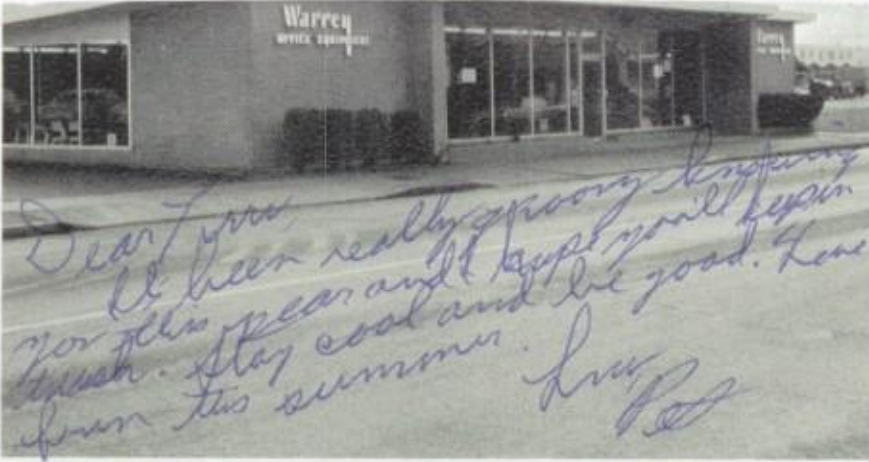 Warren
OFFICE EQUIPMENT
Warren
Dear Terri,
It been really groovy knowing
you this year and I hope you'll keep in
touch. Stay cool and be good. Have
fun this summer.
Love,
Pat